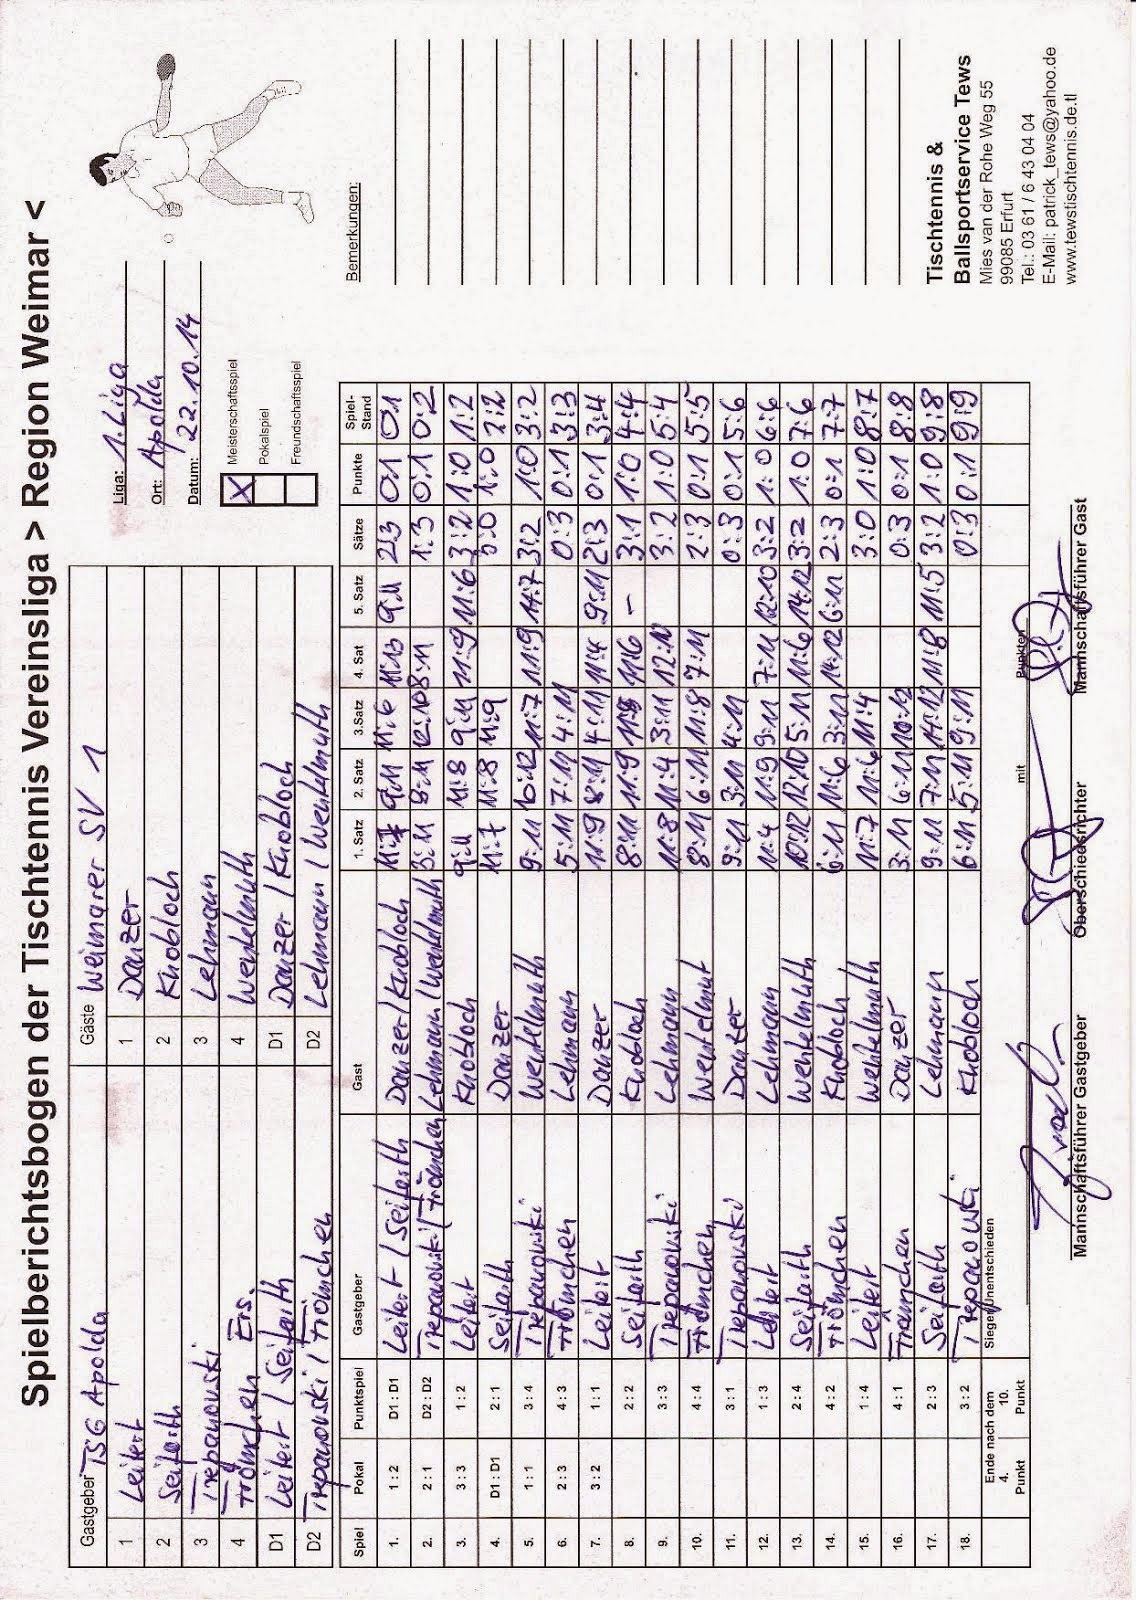 Spielberichtsbogen der Tischtennis Vereinsliga > Region Weimar <
Gastgeber TSG Apolda Gäste Weimarer SV 1
1 Leitert 1 Danzer
2 Seifarth 2 Knobloch
3 Trepanowski 3 Lehmann
4 Trömchen Ers. 4 Wentelmuth
D1 Leitert / Seifarth D1 Danzer / Knobloch
D2 Trepanowski / Trömchen D2 Lehmann / Wentelmuth
Liga: 1. Liga
Ort: Apolda
Datum: 22.10.14
X Meisterschaftsspiel
Pokalspiel
Freundschaftsspiel
Spiel Pokal Punktspiel Gastgeber Gast 1. Satz 2. Satz 3.Satz 4. Sat 5. Satz Sätze Punkte Spiel-Stand
1. 1 : 2 D1 : D1 Leitert / Seifarth Danzer / Knobloch 11:7 9:11 11:6 11:13 9:11 2:3 0:1 0:1
2. 2 : 1 D2 : D2 Trepanowski / Trömchen Lehmann / Wentelmuth 3:11 9:11 12:10 8:11 1:3 0:1 0:2
3. 3 : 3 1 : 2 Leitert Knobloch 9:11 11:8 9:11 11:9 11:6 3:2 1:0 1:2
4. D1 : D1 2 : 1 Seifarth Danzer 11:7 11:8 11:9 3:0 1:0 2:2
5. 1 : 1 3 : 4 Trepanowski Wentelmuth 9:11 10:12 11:7 11:9 11:7 3:2 1:0 3:2
6. 2 : 3 4 : 3 Trömchen Lehmann 5:11 7:11 4:11 0:3 0:1 3:3
7. 3 : 2 1 : 1 Leitert Danzer 11:9 8:11 4:11 11:4 9:11 2:3 0:1 3:4
8. 2 : 2 Seifarth Knobloch 8:11 11:9 11:8 11:6 – 3:1 1:0 4:4
9. 3 : 3 Trepanowski Lehmann 11:8 11:4 3:11 12:10 3:2 1:0 5:4
10. 4 : 4 Trömchen Wentelmut 8:11 6:11 11:8 7:11 2:3 0:1 5:5
11. 3 : 1 Trepanowski Danzer 9:11 3:11 4:11 0:3 0:1 5:6
12. 1 : 3 Leitert Lehmann 11:4 11:9 9:11 7:11 12:10 3:2 1:0 6:6
13. 2 : 4 Seifarth Wentelmuth 10:12 12:10 5:11 11:6 14:12 3:2 1:0 7:6
14. 4 : 2 Trömchen Knobloch 6:11 11:6 3:11 14:12 6:11 2:3 0:1 7:7
15. 1 : 4 Leitert Wentelmuth 11:7 11:6 11:4 3:0 1:0 8:7
16. 4 : 1 Trömchen Danzer 3:11 6:11 10:12 0:3 0:1 8:8
17. 2 : 3 Seifarth Lehmann 9:11 7:11 14:12 11:8 11:5 3:2 1:0 9:8
18. 3 : 2 Trepanowski Knobloch 6:11 5:11 9:11 0:3 0:1 9:9
Ende nach dem
4. Punkt 10. Punkt
Sieger/Unentschieden mit Punkten
Mannschaftsführer Gastgeber Oberschiedsrichter Mannschaftsführer Gast
Bemerkungen:
Tischtennis &
Ballsportservice Tews
Mies van der Rohe Weg 55
99085 Erfurt
Tel.: 03 61 / 6 43 04 04
E-Mail: patrick_tews@yahoo.de
www.tewstischtennis.de.tl